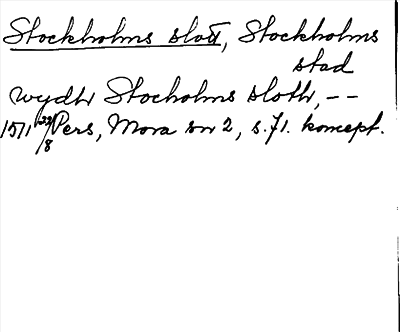 Stockholms slott, Stockholms
stad
wydh Stocholms sloth, --
1571 22/8 Pers, Mora sn 2, s. 71. koncept.